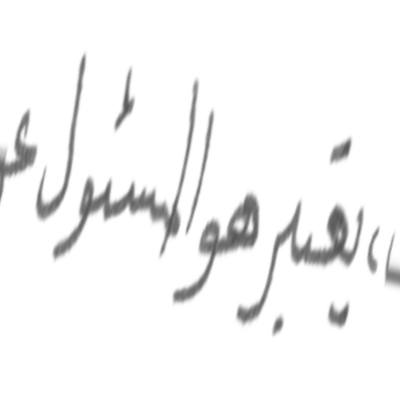 ، يعتبر هو المسئول عن